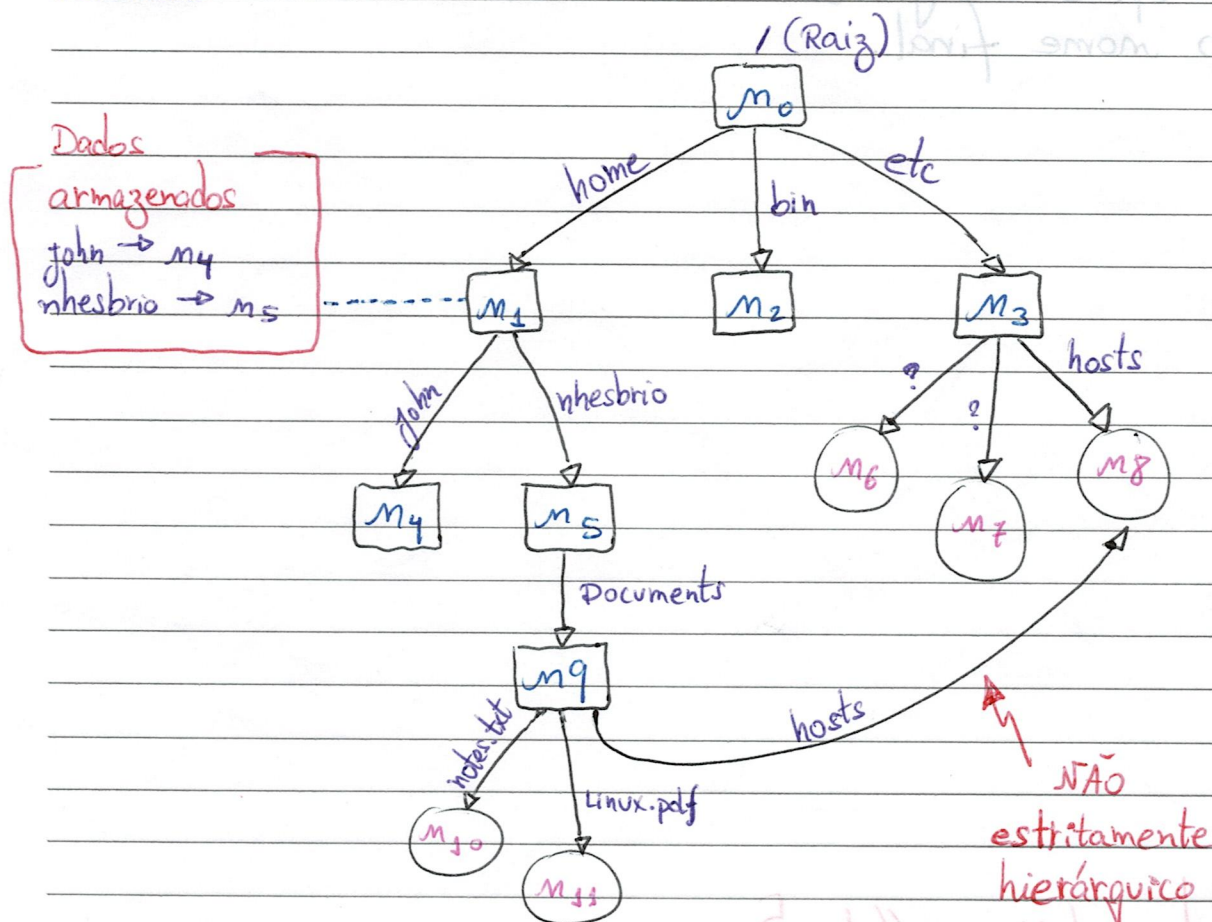 o nome final
/ (Raiz)
n0
Dados
armazenados
john → n4
nhesbrio → n5
home
bin
etc
n1
n2
n3
john
nhesbrio
?
?
hosts
n4
n5
n6
n7
n8
Documents
n9
notes.txt
Linux.pdf
hosts
n10
n11
NÃO
estritamente
hierárquico